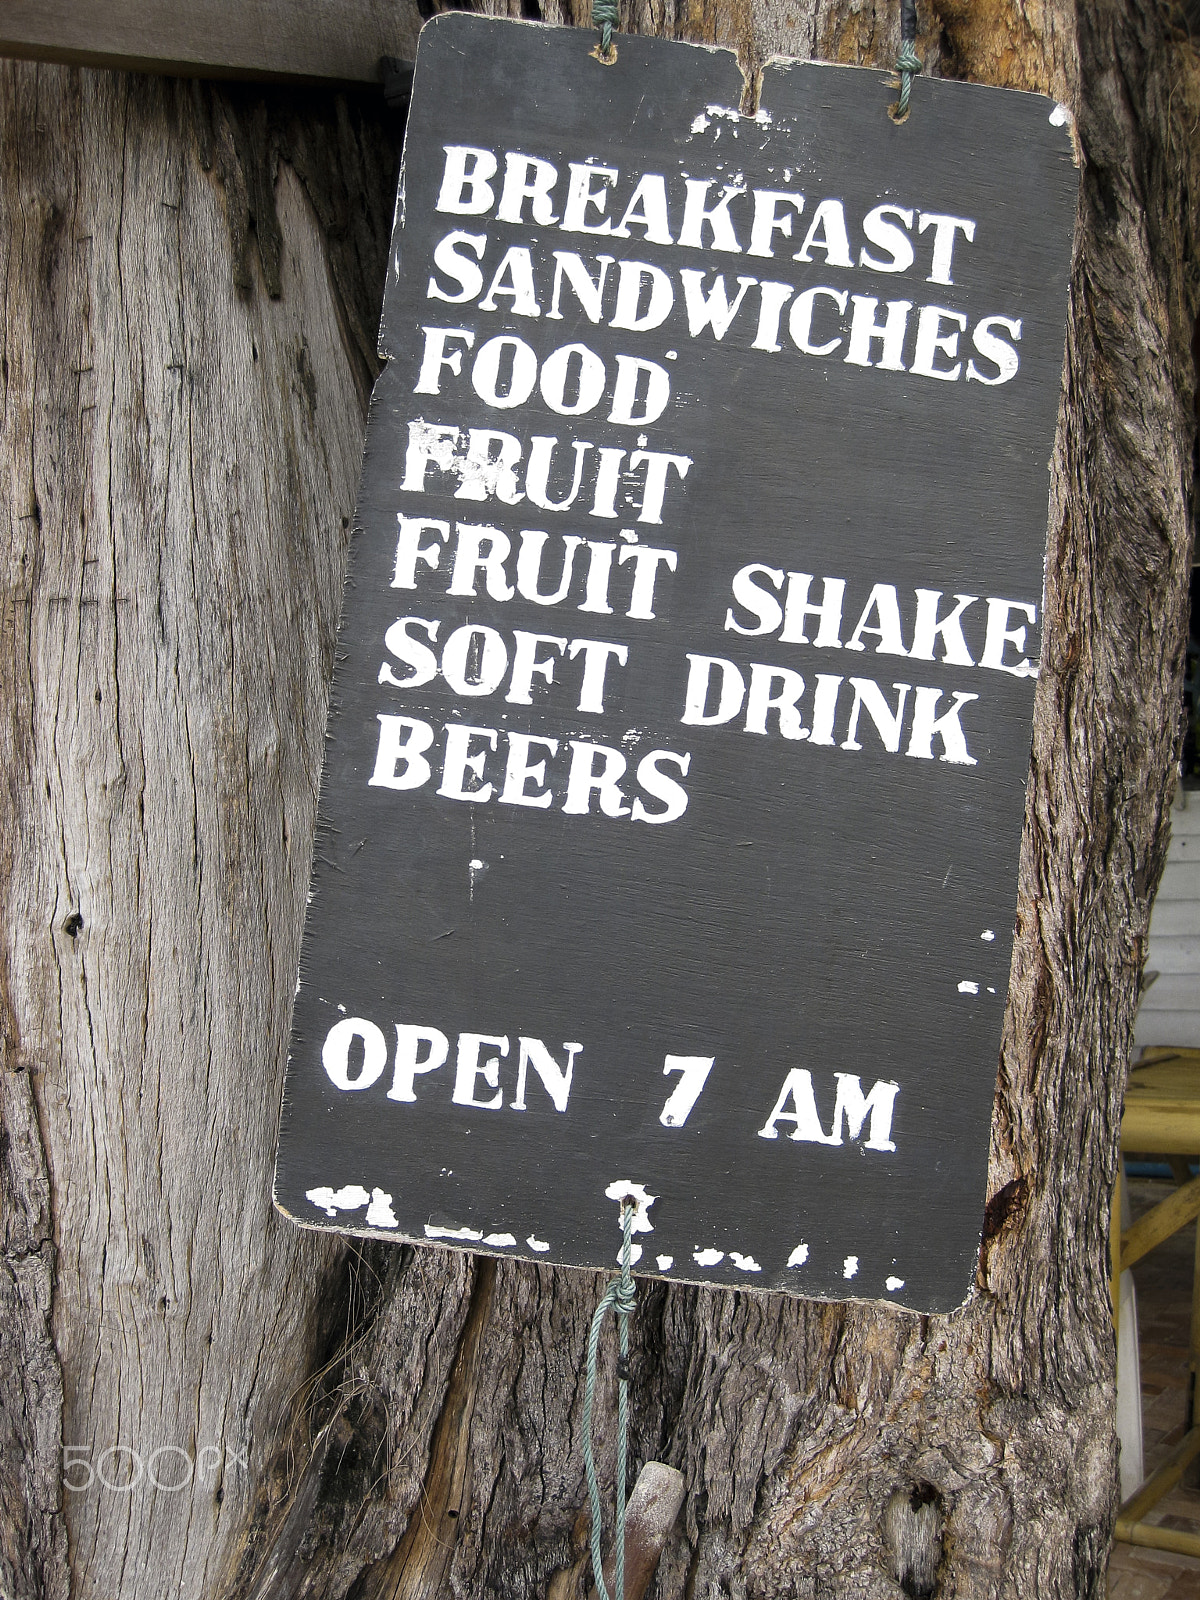 BREAKFAST
SANDWICHES
FOOD
FRUIT
FRUIT SHAKE
SOFT DRINK
BEERS
OPEN 7 AM
500px